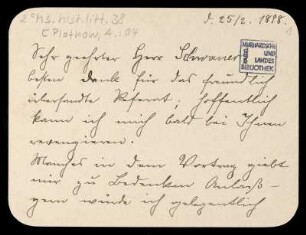 2° Ms. hist. litt. 38
d. 25/2. 1898.
[Plothow, A.: 04
1
MURHARDSCHE
UND
LANDES
BIBLIOTHEK
Sehr geehrter Herr
besten Dank für das freundlich
übersandte Referat; hoffentlich
kann ich mich bald bei Ihnen
revengieren.
Manches in dem Vortrag giebt
mir zu Bedenken Anlaß –
gern würde ich gelegentlich